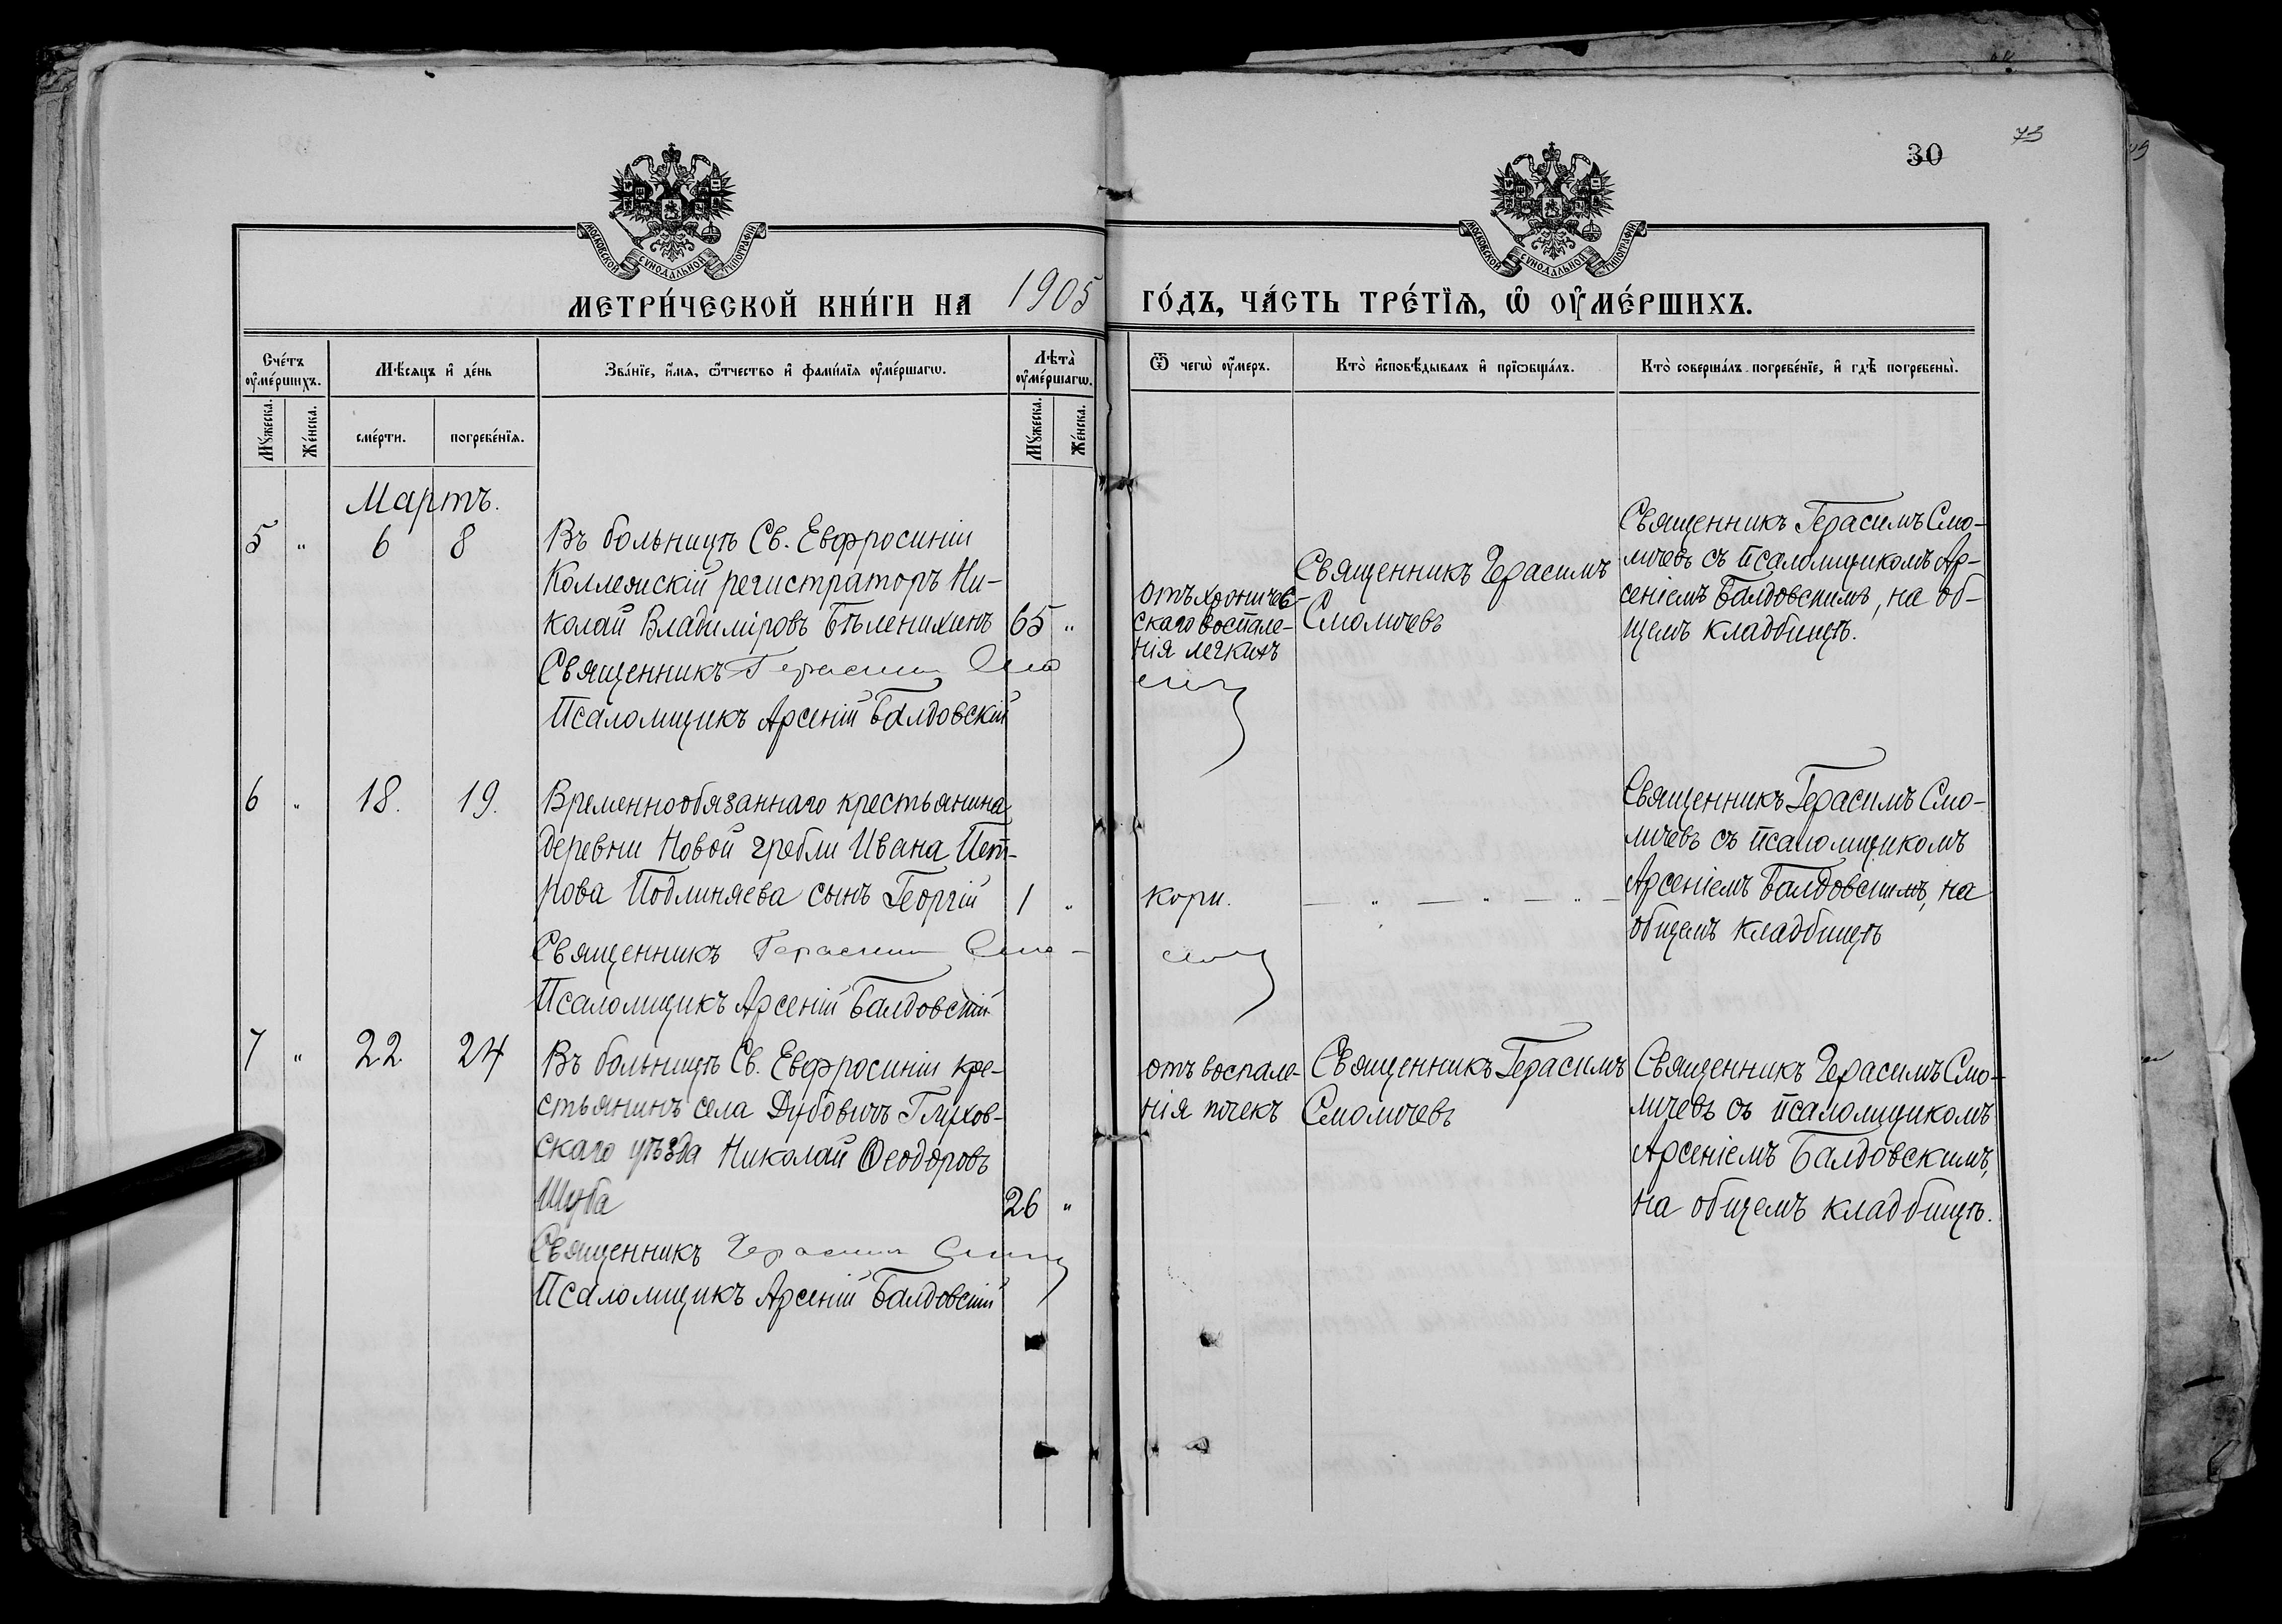 30
73
МОСКОВСКОЙ СУНОДАЛЬНОЙ ТИПОГРАФІИ
МОСКОВСКОЙ СУНОДАЛЬНОЙ ТИПОГРАФІИ
МЕТРИ́ЧЕСКОЙ КНИ́ГИ НА 1905 ГО́ДЪ, ЧА́СТЬ ТРЕ́ТІѦ, Ѡ҆ ОУ҆МЕ́РШИХЪ.
Сче́тъ оу҆ме́ршихъ.
Мꙋ́жеска.
Же́нска.
Мѣ́сѧцъ и҆ де́нь
сме́рти.
погребе́нїѧ.
Зва́нїе, и҆́мѧ, ѻ҆́тчество и҆ фами́лїѧ оу҆ме́ршагѡ.
Лѣта̀ оу҆ме́ршагѡ.
Мꙋ́жеска.
Же́нска.
Ѿ чегѡ̀ оу҆́меръ.
Кто̀ и҆сповѣ́дывалъ и҆ прїѡбща́лъ.
Кто̀ соверша́лъ погребе́нїе, и҆ гдѣ̀ погребены̀.
Мартъ.
5 " 6 8
Въ больницѣ Св. Евфросиніи
Коллежскій регистраторъ Ни-
колай Владиміровъ Бѣленихинъ 65 "
Священникъ Герасим Смо
Псаломщикъ Арсеній Балдовскій
отъ хроничес-
скаго воспале-
нія легкихъ
Священникъ Герасимъ
Смоличевъ
Священникъ Герасимъ Смо-
личевъ съ псаломщикомъ Ар-
сеніемъ Балдовскимъ, на об-
щемъ кладбищѣ.
6 " 18. 19.
Временнообязаннаго крестьянина
деревни Новой гребли Ивана Пет-
рова Подлиняева сынъ Георгій 1 "
Священникъ Герасим Смо-
Псаломщикъ Арсеній Балдовскій
кори.
— " — " — " —
Священникъ Герасимъ Смо-
личевъ съ псаломщикомъ
Арсеніемъ Балдовскимъ, на
общемъ кладбищѣ
7 " 22 24
Въ больницѣ Св. Евфросиніи кре-
стьянинъ села Дубовичъ Глухов-
скаго уѣзда Николай Ѳеодоровъ
Шуба 26 "
Священникъ Герасим
Псаломщикъ Арсеній Балдовскій
отъ воспале-
нія почекъ
Священникъ Герасимъ
Смоличевъ
Священникъ Герасимъ Смо-
личевъ съ псаломщикомъ
Арсеніемъ Балдовскимъ,
на общемъ кладбищѣ.